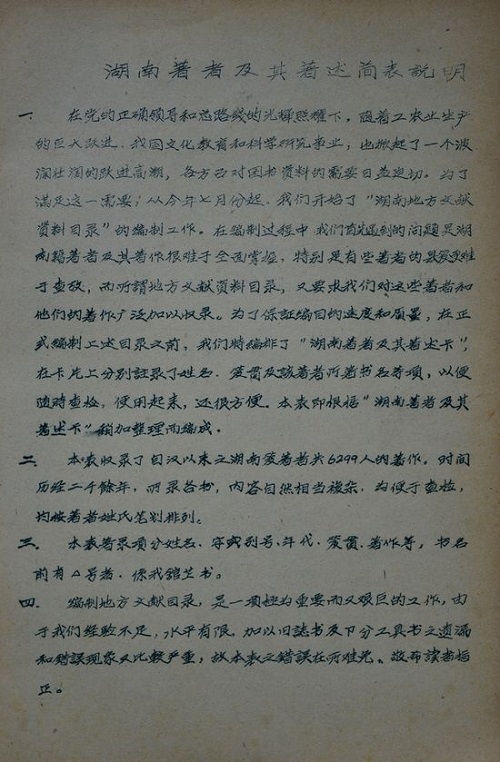 湖南著者及其著述简表說明
一、 在党的正确領导和总路綫的光輝照耀下，随着工农业生产
的巨大跃进，我国文化教育和科学研究事业，也掀起了一个波
瀾壮闊的跃进高潮，各方面对图书資料的需要日益迫切。为了
滿足这一需要，从今年七月份起，我們开始了“湖南地方文献
資料目录”的编制工作。在编制过程中我們首先遇到的问題是湖
南籍著者及其著作很难于全面掌握，特别是有些著者的县爱更难
于查攷，而所謂地方文献資料目录，又要求我們对这些著者和
他們的著作广泛加以收录。为了保証编目的速度和质量，在正
式编制上述目录之前，我們特编排了“湖南著者及其著述卡”，
在卡片上分别註录了姓名、爱貫及該著者所著书名等項，以便
随時查检，使用起来，还很方便。本表即根据“湖南著者及其
著述卡”稍加整理而编成。
二、 本表收录了自汉以来之湖南爱著者共6299人的著作。时间
历经二千餘年，所录各书，内容自然相当複杂，为便于查检，
均按著者姓氏笔划排列。
三、 本表著录項分姓名、字或别号、年代、爱貫、著作等，书名
前有△号者，係我館芷书。
四、 编制地方文献目录，是一項極为重要而又艰巨的工作，由
于我們经驗不足，水平有限，加以旧誌书及部分工具书之遺漏
和錯誤現象又比較严重，故本表之錯誤在所难免，敬希讀者指
正。